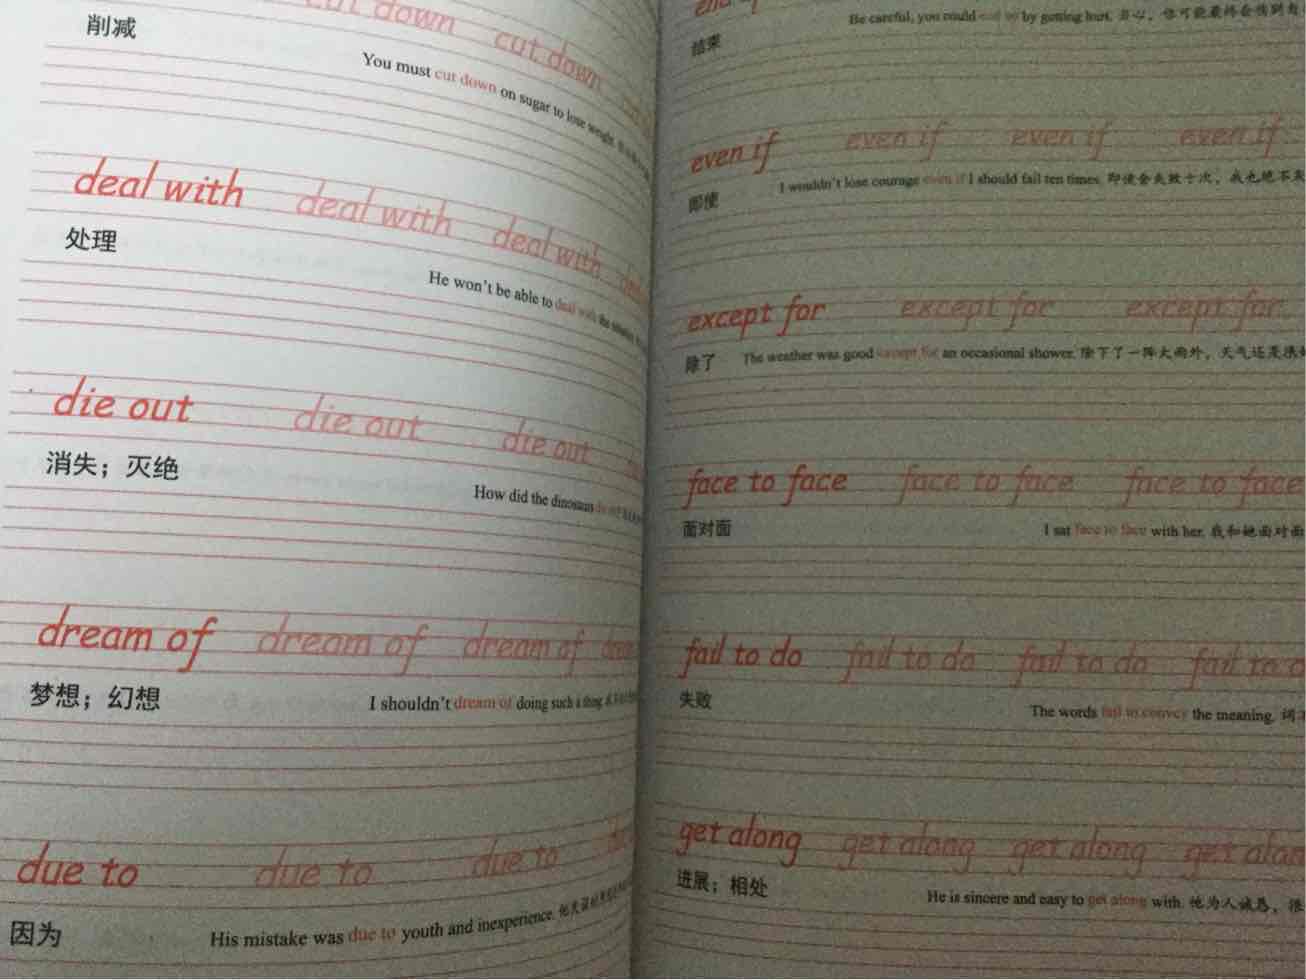 cut down cut down
削减
You must cut down on sugar to lose weight.
deal with deal with deal with
处理
He won't be able to deal with the
die out die out die out
消失；灭绝
How did the dinosaurs die out
dream of dream of dream of
梦想；幻想
I shouldn't dream of doing such a thing.
due to due to due to
因为
His mistake was due to youth and inexperience.
Be careful, you could end up by getting hurt. 当心，你可能最终会伤到自
结束
even if even if even if even if
I wouldn't lose courage even if I should fail ten times. 即使会失败十次，我也绝不
即使
except for except for except for
除了 The weather was good except for an occasional shower. 除下了一阵大雨外，天气还是很
face to face face to face face to face
面对面 I sat face to face with her. 我和她面对面
fail to do fail to do fail to do fail to d
失败
The words fail to convey the meaning. 词
get along get along get along get alon
进展；相处
He is sincere and easy to get along with. 他为人诚恳，很